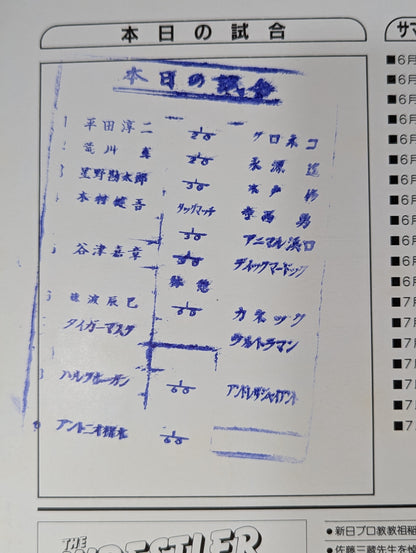 本日の試合
本日の試合
1 平田淳二 1/20 クロネコ
荒川真 1/20 永源遙
3 星野勘太郎 1/30 木戸修
木村健吾 タッグマッチ 寺西勇
1/30 アニマル浜口
谷津嘉章 ディックマードック
休憩
藤波辰巳 1/60 カネック
タイガーマスク ウルトラマン
ハルクホーガン 1/60 アンドレザジャイアント
アントニオ猪木 1/60
サマ
■6月
■6月
■6月
■6月
■6月
■6月
■6月
■6月
■6月
■6月
■6月
■6月
■7月
■7月
■7月
■7月
■7月
■7月
THE
WRESTLER
●新日プロ教
●佐藤三蔵先生を